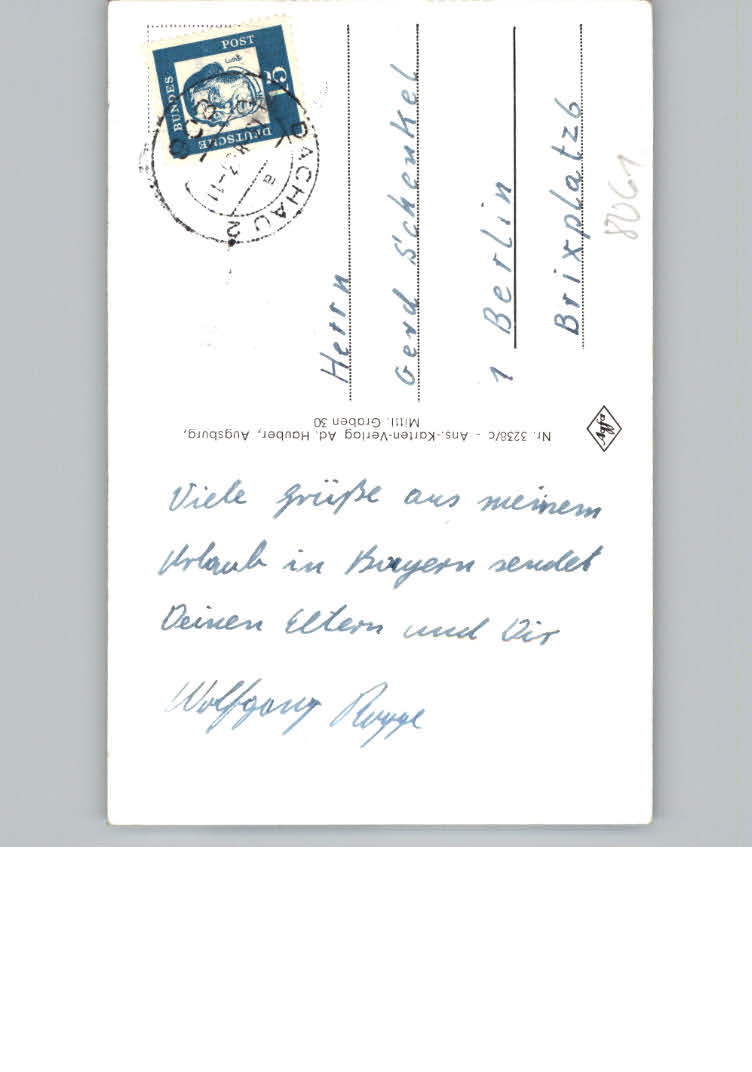 DEUTSCHE BUNDES POST
15
Luther
DACHAU 2
a
Herrn
Gerd Schenkel
1 Berlin
Brixplatz 6
8061
Nr. 3238/c - Ans.-Karten-Verlag Ad. Hauber, Augsburg,
Mittl. Graben 30
Agfa
Viele Grüße aus meinem
Urlaub in Bayern sendet
Deinen Eltern und Dir
Wolfgang